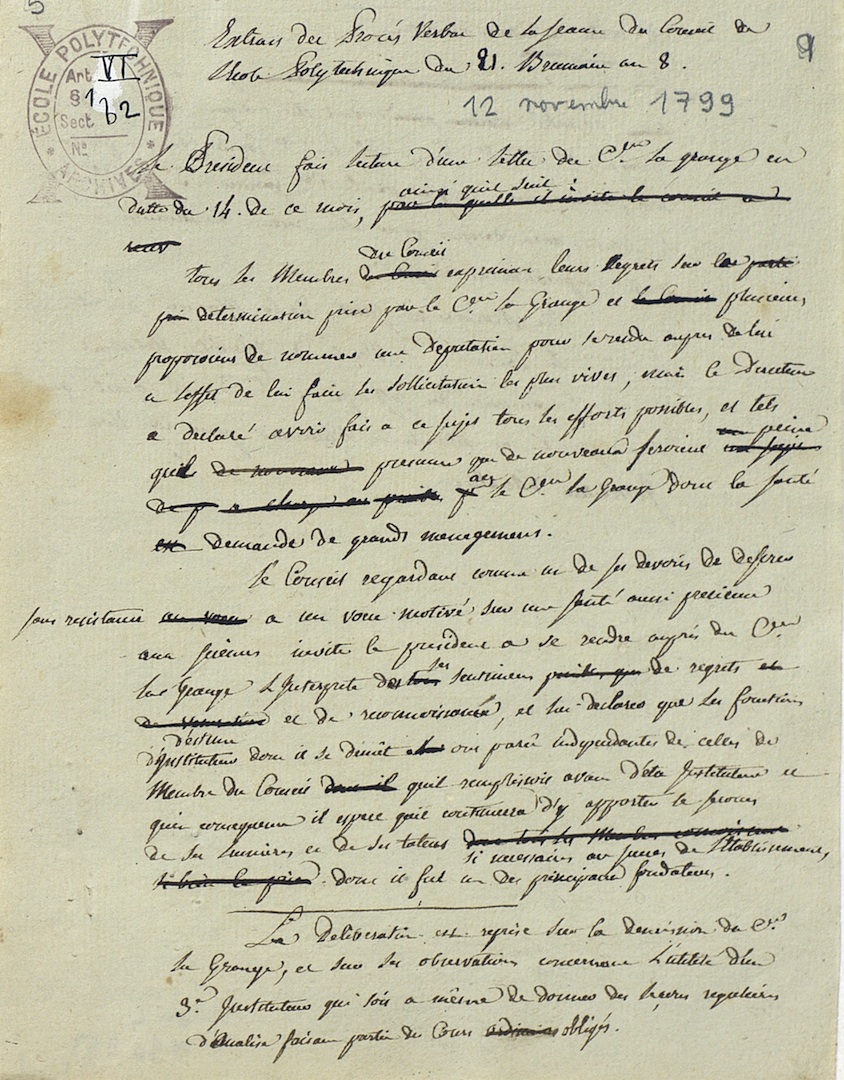 5
ECOLE POLYTECHNIQUE
ARCHIVES
Art. VI
§ 1
Sect b2
N°
Extrait du Procès Verbal de la séance du Conseil de
l'École Polytechnique du 21. Brumaire an 8.
12 novembre 1799
Le Président fait lecture d'une lettre du C.en la grange en
datte du 14. de ce mois, ainsi qu'il suit :
par laquelle il invite le conseil a
tous les Membres du Conseil expriment leurs Regrets sur la
determination prise par le C.en la Grange et plusieurs
proposoient de nommer une Deputation pour se rendre auprès de lui
a l'effet de lui faire les sollicitations les plus vives, mais le Directeur
a declaré avoir fait a ce sujet tous les efforts possibles, et tels
qu'il presume que de nouveaux seroient en peine
le C.en la Grange dont la santé
demande de grands menagemens.
Le Conseil regardant comme un de ses devoirs de deferer
sans resistance a un voeu motivé sur une santé aussi precieuse
aux sciences invite le president a se rendre auprès du C.en
la Grange L'Interprete de ses sentimens de regrets
d'estime et de reconnoissance, et lui declarer que les fonctions
d'Instituteur dont il se dimet ont paru independantes de celles de
Membre du Conseil qu'il remplissoit avant d'être Instituteur et
qu'en consequence il espere qu'il continuera d'y apporter le secours
de ses lumieres et de ses talens
si necessaires au succès de l'Etablissement,
dont il fut un des principaux fondateurs.
La Deliberation est reprise sur la demission du C.en
la Grange, et sur ses observations concernant L'utilité d'un
3.e Instituteur qui soit a même de donner des leçons regulieres
d'analise faisant partie du Cours obligés.